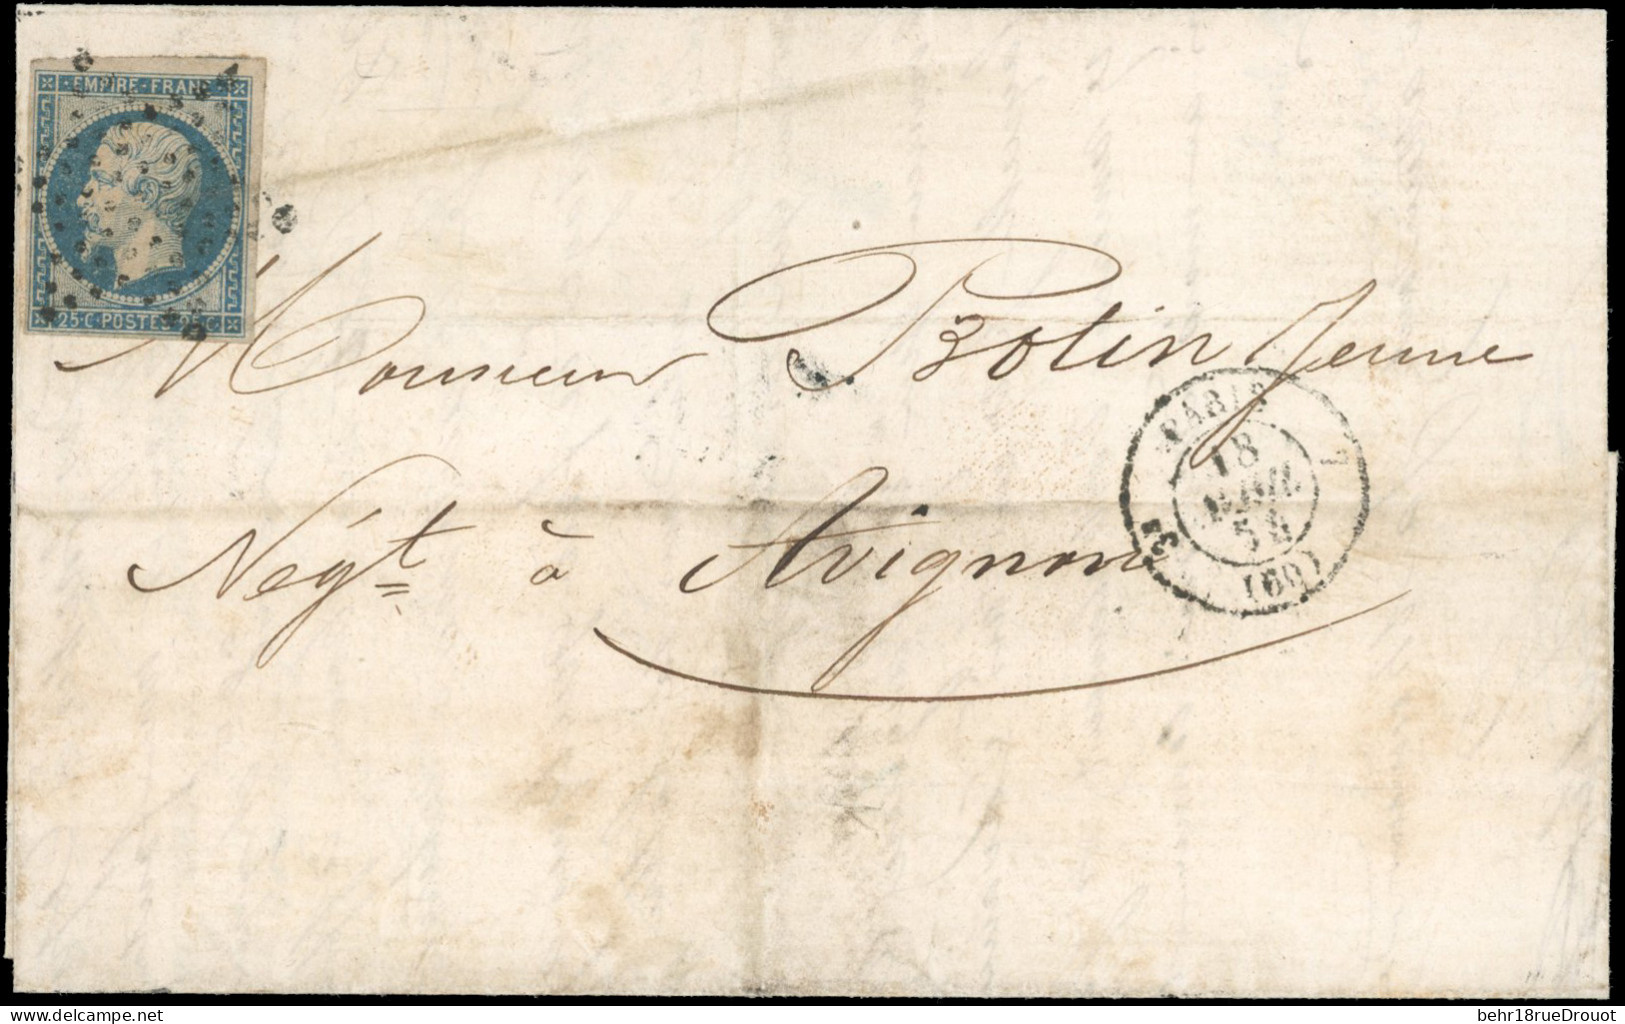 EMPIRE FRANC
25 C POSTES 25 C
Monsieur Botin Jeune
Négt à Avignon
PARIS
18
AVRIL
54
3
(60)
delcampe.net
behr18rueDrouot